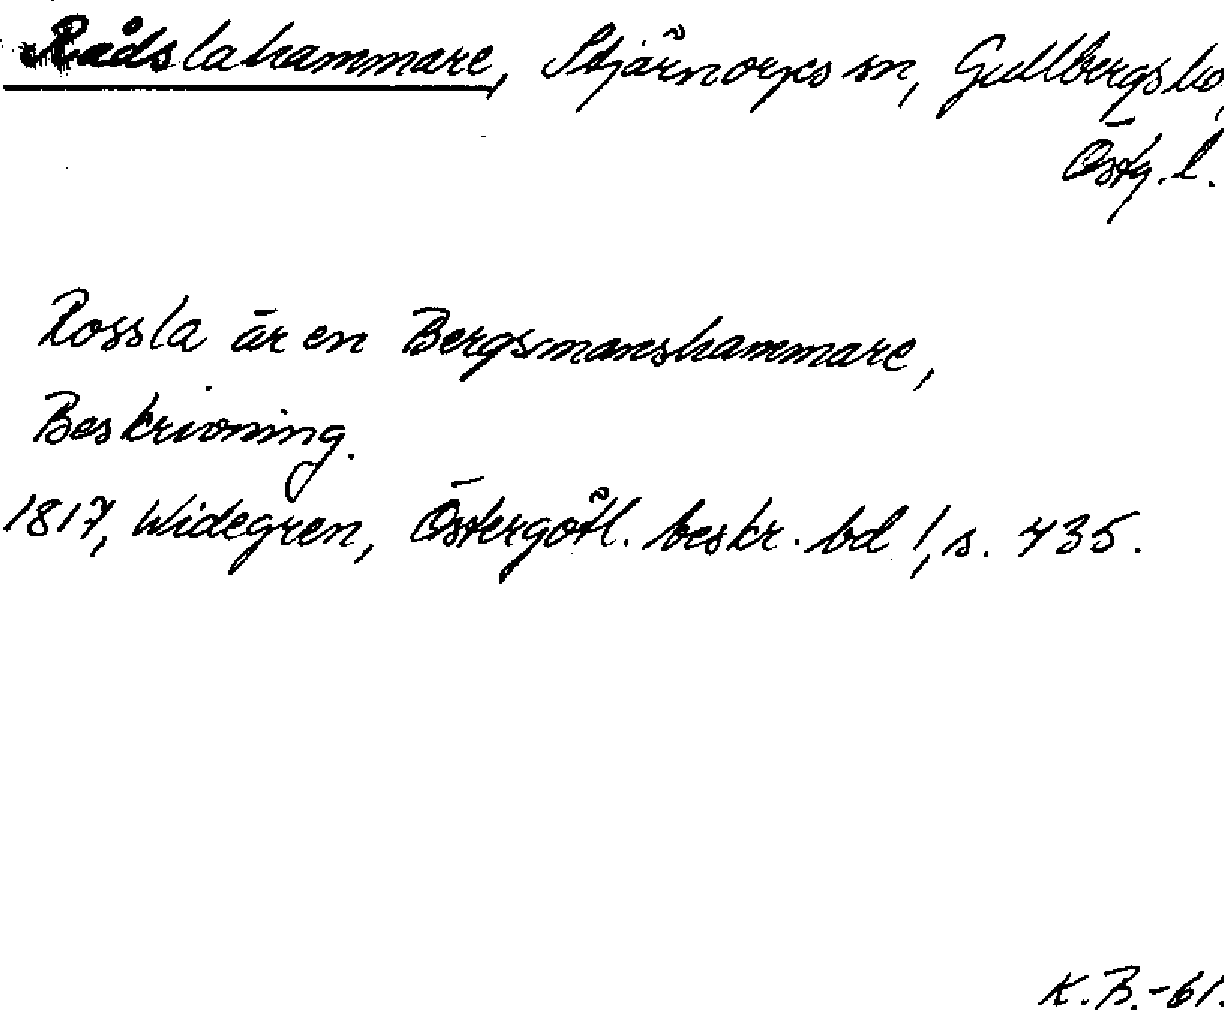 Rådslahammare, Stjärnorps sn, Gullbergs hd,
Östg. l.
Rossla är en Bergsmanshammare,
Beskrivning.
1817, Widegren, Östergötl. beskr. bd 1, s. 435.
K.B.-61.